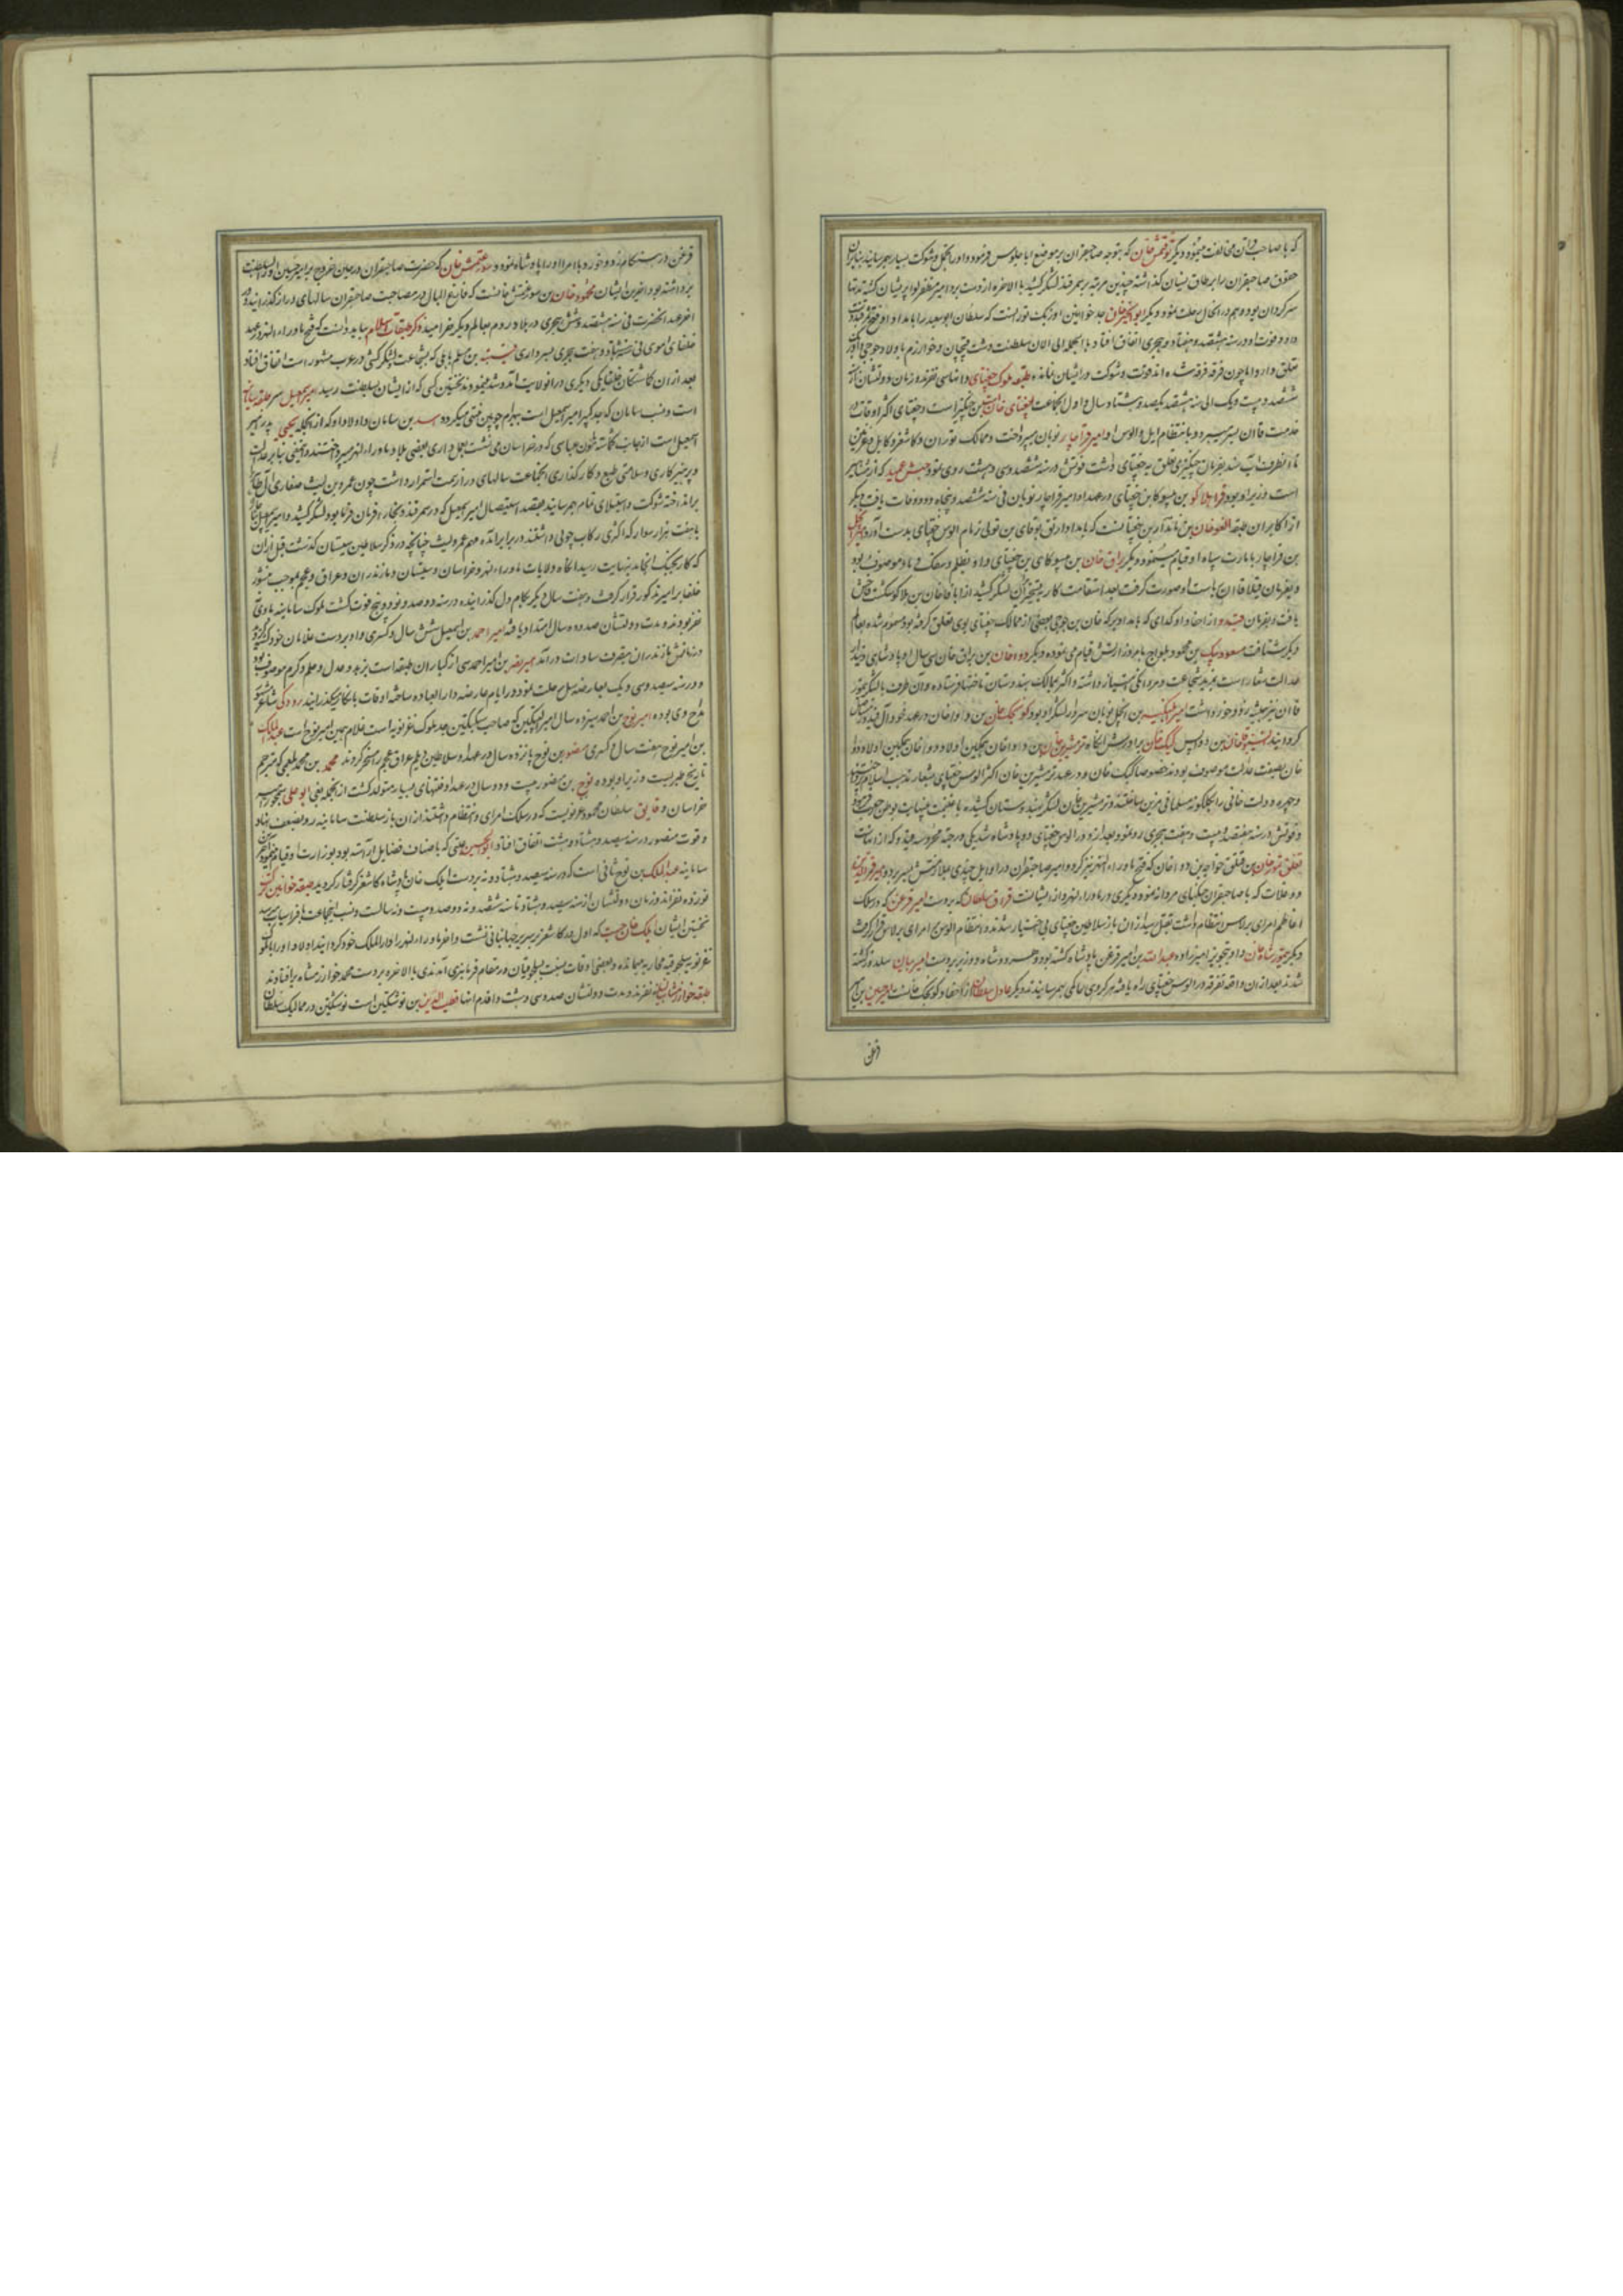 که با صاحب قران مخالفت مینمود و دیگر توقتمش خان که بتوجه صاحبقران بر موضع ابا جلوس فرموده و او را تجمل و شوکت بسیار بهم رسانید بنابران
حقوق صاحبقران را بر طاق نسیان گذاشته چندین مرتبه بر سمرقند لشکر کشید بالاخره از دست برد امیر مظفر لوا پریشان گشته مدتها
سرگردان بود و هم در انحال رحلت نمود و دیگر ابو الخیر خان جد خوانین اوزبک تورانست که سلطان ابو سعید را بامداد او
داد و فوت او در سنه هشتصد و هفتاد و هجری اتفاق افتاد بالجمله الی الان سلطنت دشت قبچاق و خوارزم باولاد جوجی
تعلق دارد اما چون فرقه فرقه شده اند قوت و شوکت در ایشان نمانده طبقه ملوک جغتای و اسامی نفرند و زمان دولتشان از
ششصد و بیست و یک الی سنه هشتصد یکصد و هشتاد سال و اول انجماعت جغتای خان بن چنگیز است و جغتای اکثر اوقات در
خدمت قاآن بسر میبرد و بانتظام ایل و الوس او امیر قراچار نویان میپرداخت و ممالک توران و کاشغر و کابل و غزنین
تا انطرف آب سند بفرمان چنگیزی تعلق به جغتای داشت فوتش در سنه ششصد و سی و هشت روی نمود حبش عمید که از مشاهیر
است وزیر او بود قرا هلاکو بن میتوکان بن جغتای و در عهد او امیر قراچار نویان فی سنه ششصد و پنجاه و دو وفات یافت دیگر
از اکابران طبقه الغو خان بن بایدار بن جغتای است که بامداد ارتق بوقای بن تولی زمام الوس جغتای بدست آورد
بن قراچار بامارت سپاه او قیام مینمود و دیگر براق خان بن میسوکای بن جغتای و او بظلم و سفک دماء موصوف بود
و بفرمان قبلا قاآن بر الوس ریاست او صورت گرفت بعد استقامت کار به تسخیر ایران لشکر کشید از اباقا خان بن هلاکو شکست فاحش
یافت و بفرمان قیدو از احفاد اوکدای که بامداد برکه خان بن جوجی بعضی از ممالک جغتای بوی تعلق گرفته بود مسموم شده بعالم
دیگر شتافت مسعود بیک بن محمود یلواج بامر وزارتش قیام می نموده و دیگر دوا خان بن براق خان سی سال او پادشاهی دیندار
عدالت شعار است بمزید شجاعت و مردانگی امتیاز داشته و اکثر بممالک هندوستان تاختها فرستاده و آن طرف با لشکر تیمور
قاآن نیز همیشه زد و خورد داشت امیر ایلنگیر بن ایچل نویان سردار لشکر او بود کونجک خان بن دوا خان در عهد خود آل قیدو را
کردو دیگر ایسنبوقا خان بن دوا پس کبک خان برادرش انگاه ترمشیرین خان بن دوا خان همگین اولاد دوا خان همگین اولاد دوا
خان بصفت عدالت موصوف بودند خصوصا کبک خان و در عهد ترمشیرین خان اکثر الوس جغتای بشعار مذهب اسلام
و چهره دولت خانی را بگلگونه مسلمانی مزین ساختند و ترمشیرین خان لشکر بهندوستان کشیده با غنیمت بینهایت بوطن
و فوتش در سنه هفتصد و بیست و هفت هجری رو نمود و بعد از و در الوس جغتای دو پادشاه شد یکی در جته
تغلق تیمور خان بن قتلق خواجه بن دوا خان که فتح ماوراء النهر نیز کرد و امیر صاحبقران در اوایل چندی ملازمتش بسر برد و امیر قمرالدین
دوغلات که با صاحبقران جنگهای مردانه نمود و دیگری در ماوراء النهر و از ایشانست قزان سلطان که بر دست امیر قزغن که در سلک
اعاظم امرای برلاس انتظام داشت بقتل رسید از آن باز سلاطین جغتای بی اختیار شدند و انتظام الوس با مرای برلاس قرار گرفت
و دیگر تیمور شاه خان و او بتجویز امیرزاده عبد الله بن امیر قزغن پادشاه گشته بود و هر دو شاه و وزیر بر دست امیر بیان سلدوز کشته
شدند بعد از آن واقعه تفرقه در الوس جغتای راه یافته هر کروهی حاکمی بهم رسانیدند دیگر عادل سلطان از احفاد کونجک خانست امیر حسین بن
قزغن
قزغن در هنگام زد و خورد با امرا او را پادشاه نمود و سیورغتمش خان که حضرت صاحبقران در حین خروج بر امیر حسین او را بسلطنت
برداشته بود و اخرین ایشان محمود خان بن سیورغتمش خانست که فارغ البال در مصاحبت صاحبقران سالهای دراز گذرانید و در
اخر عهد انحضرت فی سنه هشتصد و شش هجری در بلاد روم بعالم دیگر خرامید ذکر طبقات اسلام بباید دانست که فتح ماوراء النهر در عهد
خلفای اموی فی سنه هشتاد و هفت هجری بسرداری قتیبه بن مسلم باهلی که بشجاعت و لشکر کشی در عرب مشهور است اتفاق افتاد
بعد از ان گماشتگان خلفا یکی دیگری در انولایت آمد و شد مینمودند نخستین کسی که از ایشان بسلطنت رسید امیر اسمعیل سر حلقه سامانیه
است و نسب سامان که جد کبیر امیر اسمعیل است ببهرام چوبین منتهی میگردد اسد بن سامان دو اولاد داد که از انجمله یحیی پدر امیر
اسمعیل است از جانب گماشته مامون عباسی که در خراسان می نشست بعمل داری بعضی بلاد ماوراء النهر میپرداختند
و پرهیزکاری و سلامتی طبع و کارگذاری انجماعت سالهای دراز سمت استمرار داشت چون عمرو بن لیث صفاری آل طاهر
برانداخته شوکت و استیلای تمام بهم رسانید بقصد استیصال امیر اسمعیل که در سمرقند و بخارا فرمان فرما بود لشکر کشید و امیر اسمعیل
با هفت هزار سوار که اکثری رکاب چوبی داشتند در برابر آمده مهم عمرو لیث چنانچه در ذکر سلاطین سیستان گذشت قبل از ان
که کار بجنگ انجامد بنهایت رسید انگاه ولایات ماوراء النهر و خراسان و سیستان و مازندران و عراق و عجم بموجب منشور
خلفا بر امیر مذکور قرار گرفت و هفت سال دیگر بکام دل گذرانیده در سنه دو صد و نود و پنج فوت گشت ملوک سامانیه
نفر بودند و مدت دولتشان صد و ده سال امتداد یافته امیر احمد بن اسمعیل شش سال و کسری و او بر دست غلامان خود کشته شد
و زمانش مازندران متصرف سادات درآمد امیر نصر بن امیر احمد سی از کباران طبقه است بزهد و عدل و علم و کرم موصوف بود
و در سنه سیصد و سی و یک بعارضه سل رحلت نمود در ایام عارضه دار العباده ساخته اوقات بانکار میگذرانید رودکی شاعر
مداح وی بوده امیر نوح بن احمد سیزده سال امیر الپتکین که صاحب سبکتگین جد ملوک غزنویه است غلام همین امیر نوح است عبد الملک
بن امیر نوح هفت سال و کسری منصور بن نوح پانزده سال و در عهد او سلاطین دیلم عراق عجم را مسخر کردند محمد بن محمد بلعمی که مترجم
تاریخ طبریست وزیر او بوده نوح بن منصور بیست و دو سال در عهد او فتنهای بسیار متولد گشت از انجمله بغی ابو علی سیمجور امیر
خراسان و فایق سلطان محمود غزنویست که در سلک امرای او انتظام داشتند از ان باز سلطنت سامانیه رو بضعف نهاد
و فوت منصور در سنه سیصد و هشتاد و هشت اتفاق افتاد ابو الحسین عتبی که باصناف فضایل آراسته بود بوزارت او قیام مینمود
سامانیه عبد الملک بن نوح ثانی است که در سنه سیصد و هشتاد و نه بر دست ایلک خان پادشاه کاشغر گرفتار گردید طبقه خوانین
نوزده نفرند و زمان دولتشان از سنه سیصد و هشتاد تا سنه ششصد و نه دو صد و بیست و نه سالست و نسب انجماعت بافراسیاب میرسد
نخستین ایشان ایلک خان است که اول در کاشغر بر سریر جهانبانی نشست و اخر ماوراء النهر را دار الملک خود کرد و ابتدا اولاد او را با ملوک
غزنویه و سلجوقیه محاربه میمانده و بعضی اوقات بنسبت سلجوقیان در مقام فرمانبری آمدندی بالاخره بر دست محمد خوارزمشاه برافتادند
طبقه خوارزمشاهیه نه نفرند و مدت دولتشان صد و سی و هشت و اقدم انها قطب الدین بن نوشتکین است نوشتکین در ممالیک سلطان